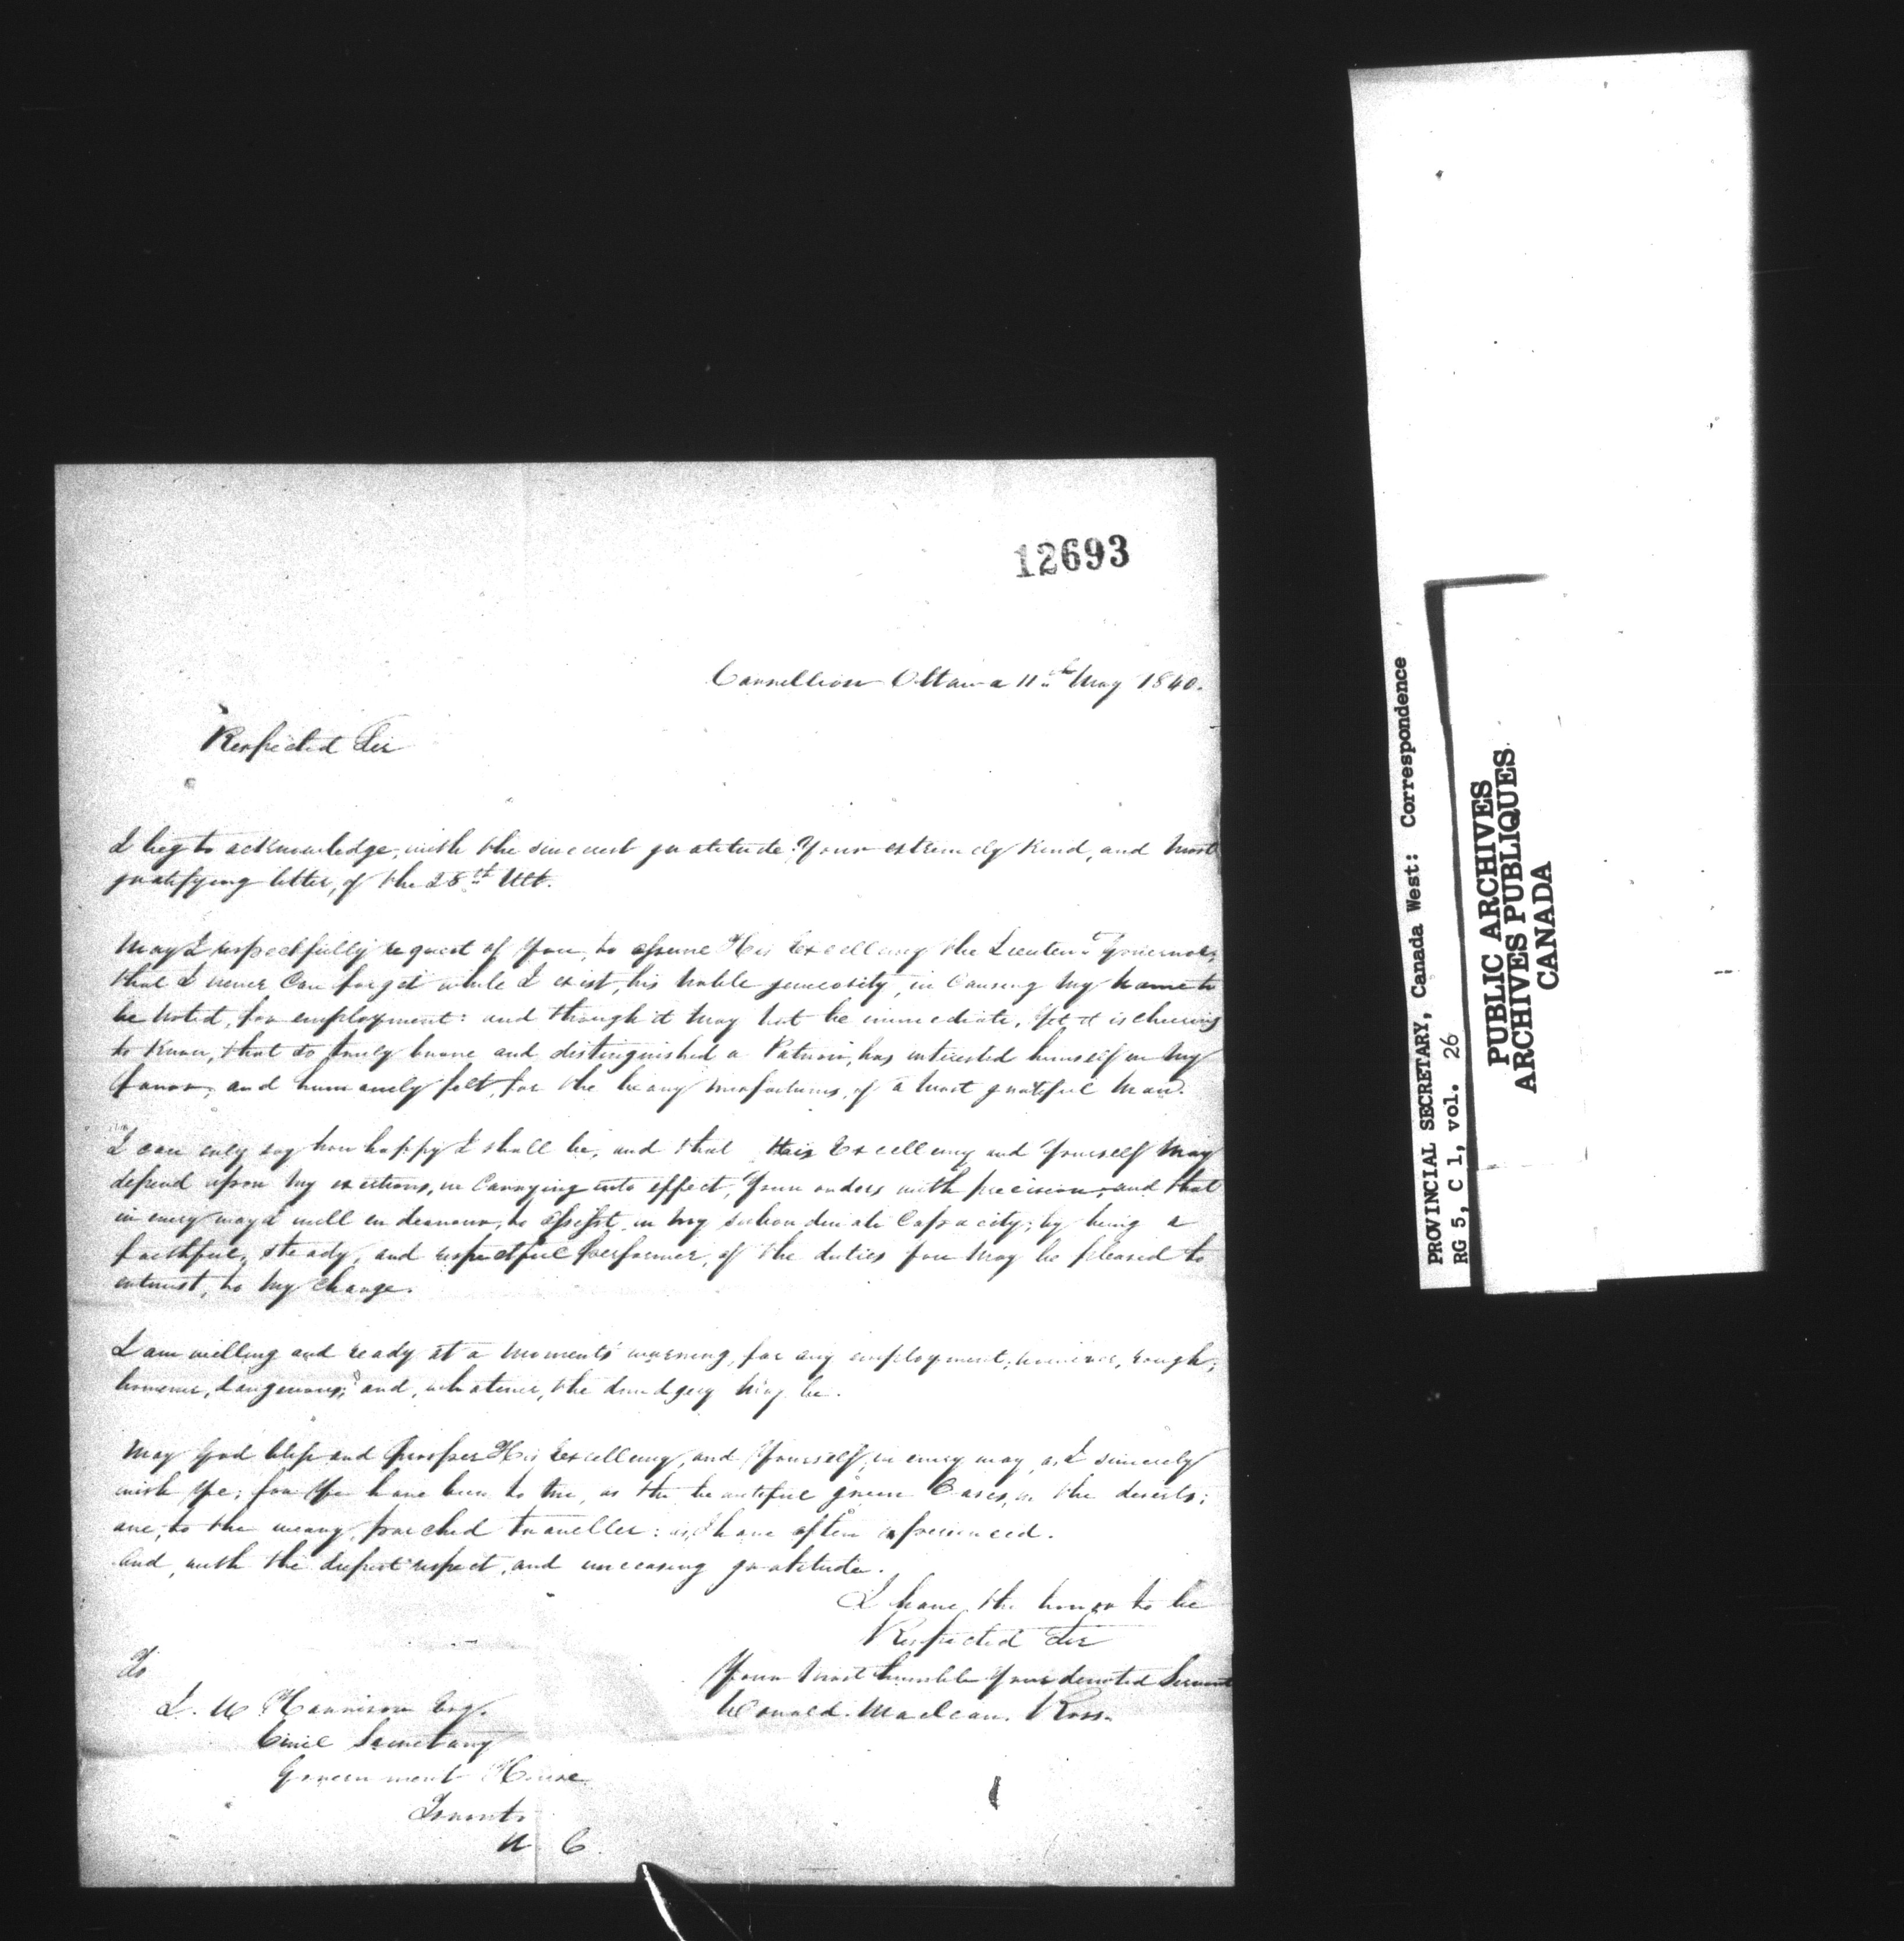 12693
Carrellion Ottawa 11th May 1840.
Respected Sir
I beg to acknowledge, with the sincerest gratitude Your extremely kind, and most
gratifying letter, of the 28th Ult.
May I respectfully request of You, to assure His Excellency the Lieutent Governor,
that I never Can forget while I exist, his noble generosity, in Causing My name to
be noted, for employment: and though it May not be immediate, Yet it is cheering
to Know, that so truly brave and distinguished a Patron, has interested himself in My
favor, and humanely felt, for the heavy misfortunes, of a most grateful Man.
I can only say how happy I shall be, and that His Excellency and Yourself May
depend upon My exertions, in Carrying into effect, Your orders with precision, and that
in every way I will endeavour, to assist, in My subordinate Capacity; by being a
faithful, steady, and respectful performer, of the duties you May be pleased to
intrust, to My charge.
I am willing and ready at a Moments' warning, for any employment; however, rough;
however, dangerous; and, whatever, the drudgery May be.
May God bless and prosper His Excellency, and Yourself, in every way, as I sincerely
wish Ye; for Ye have been to me, as the beautiful green Oases, in the deserts;
are, to the weary, parched traveller: as I have often experienced.
And, with the deepest respect, and unceasing gratitude.
I have the honor to be
Respected Sir
Your Most humble Your devoted Servant
Donald. Maclean. Ross.
To
S. B Harrison Esq.
Civil Secretary
Government House
Toronto
U C
PROVINCIAL SECRETARY, Canada West: Correspondence
RG 5, C 1, vol. 26
PUBLIC ARCHIVES
ARCHIVES PUBLIQUES
CANADA